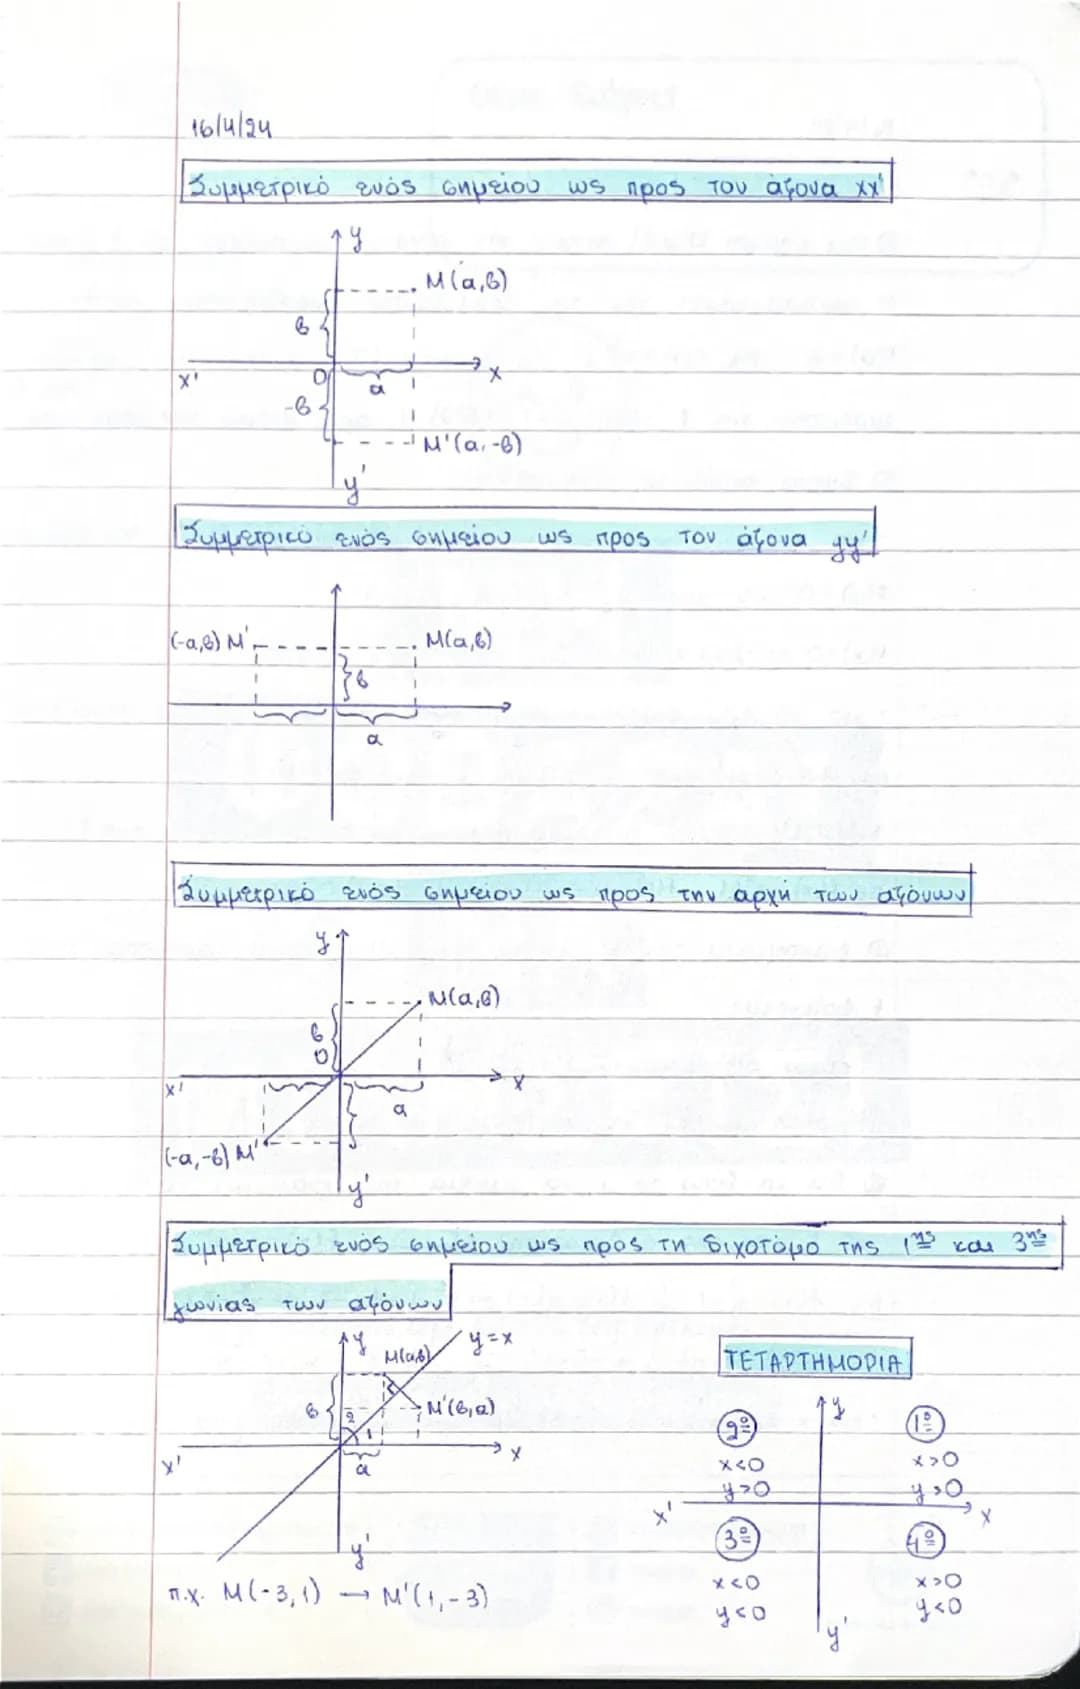 16/4/24
Συμμετρικό ενός σημείου ως προς τον άξονα xx'
y
M(α,β)
β
x'
O
α
x
-β
M'(α,-β)
y'
Συμμετρικό ενός σημείου ως προς τον άξονα yy'
(-α,β) M'
M(α,β)
β
α
Συμμετρικό ενός σημείου ως προς την αρχή των αξόνων
y
M(α,β)
β
O
x'
x
α
(-α,-β) M'
y'
Συμμετρικό ενός σημείου ως προς τη διχοτόμο της 1ης και 3ης
γωνίας των αξόνων
y
y=x
M(α,β)
β
M'(β,α)
2
1
x'
α
x
y'
π.χ. M(-3,1) → M'(1,-3)
ΤΕΤΑΡΤΗΜΟΡΙΑ
y
2º
1º
x<0
x>0
y>0
y>0
x'
x
3º
4º
x<0
x>0
y<0
y<0
y'